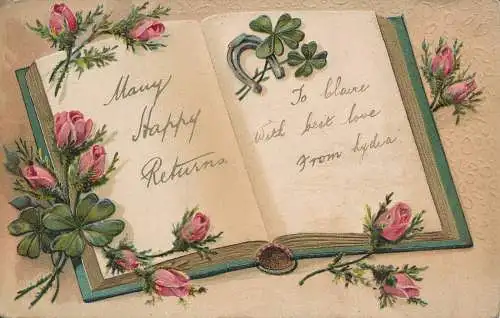 Many
Happy
Returns
To Claire
With best love
From Lydia